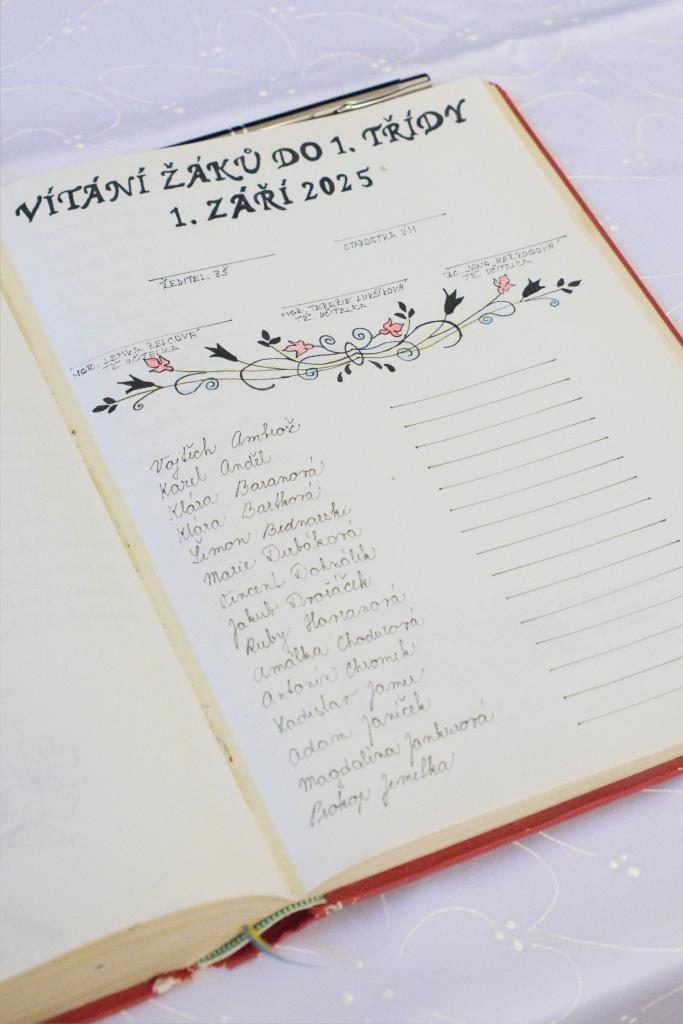 VÍTÁNÍ ŽÁKŮ DO 1. TŘÍDY
1. ZÁŘÍ 2025
STAROSTKA ÚM
ŘEDITEL ZŠ
BC. JANA HERZOGOVÁ
TŘ. UČITELKA
MGR. TEREZIE LUKŠÍKOVÁ
TŘ. UČITELKA
MGR. LENKA ZELCOVÁ
TŘ. UČITELKA
Vojtěch Ambrož
Karel Anděl
Klára Baranová
Klára Bartková
Šimon Bednarski
Marie Durbáková
Vincent Dohnálik
Jakub Dražáček
Ruby Harianová
Amálka Chodurová
Antonín Chromek
Ladislav James
Adam Janíček
Magdaléna Jankurová
Prokop Jemelka